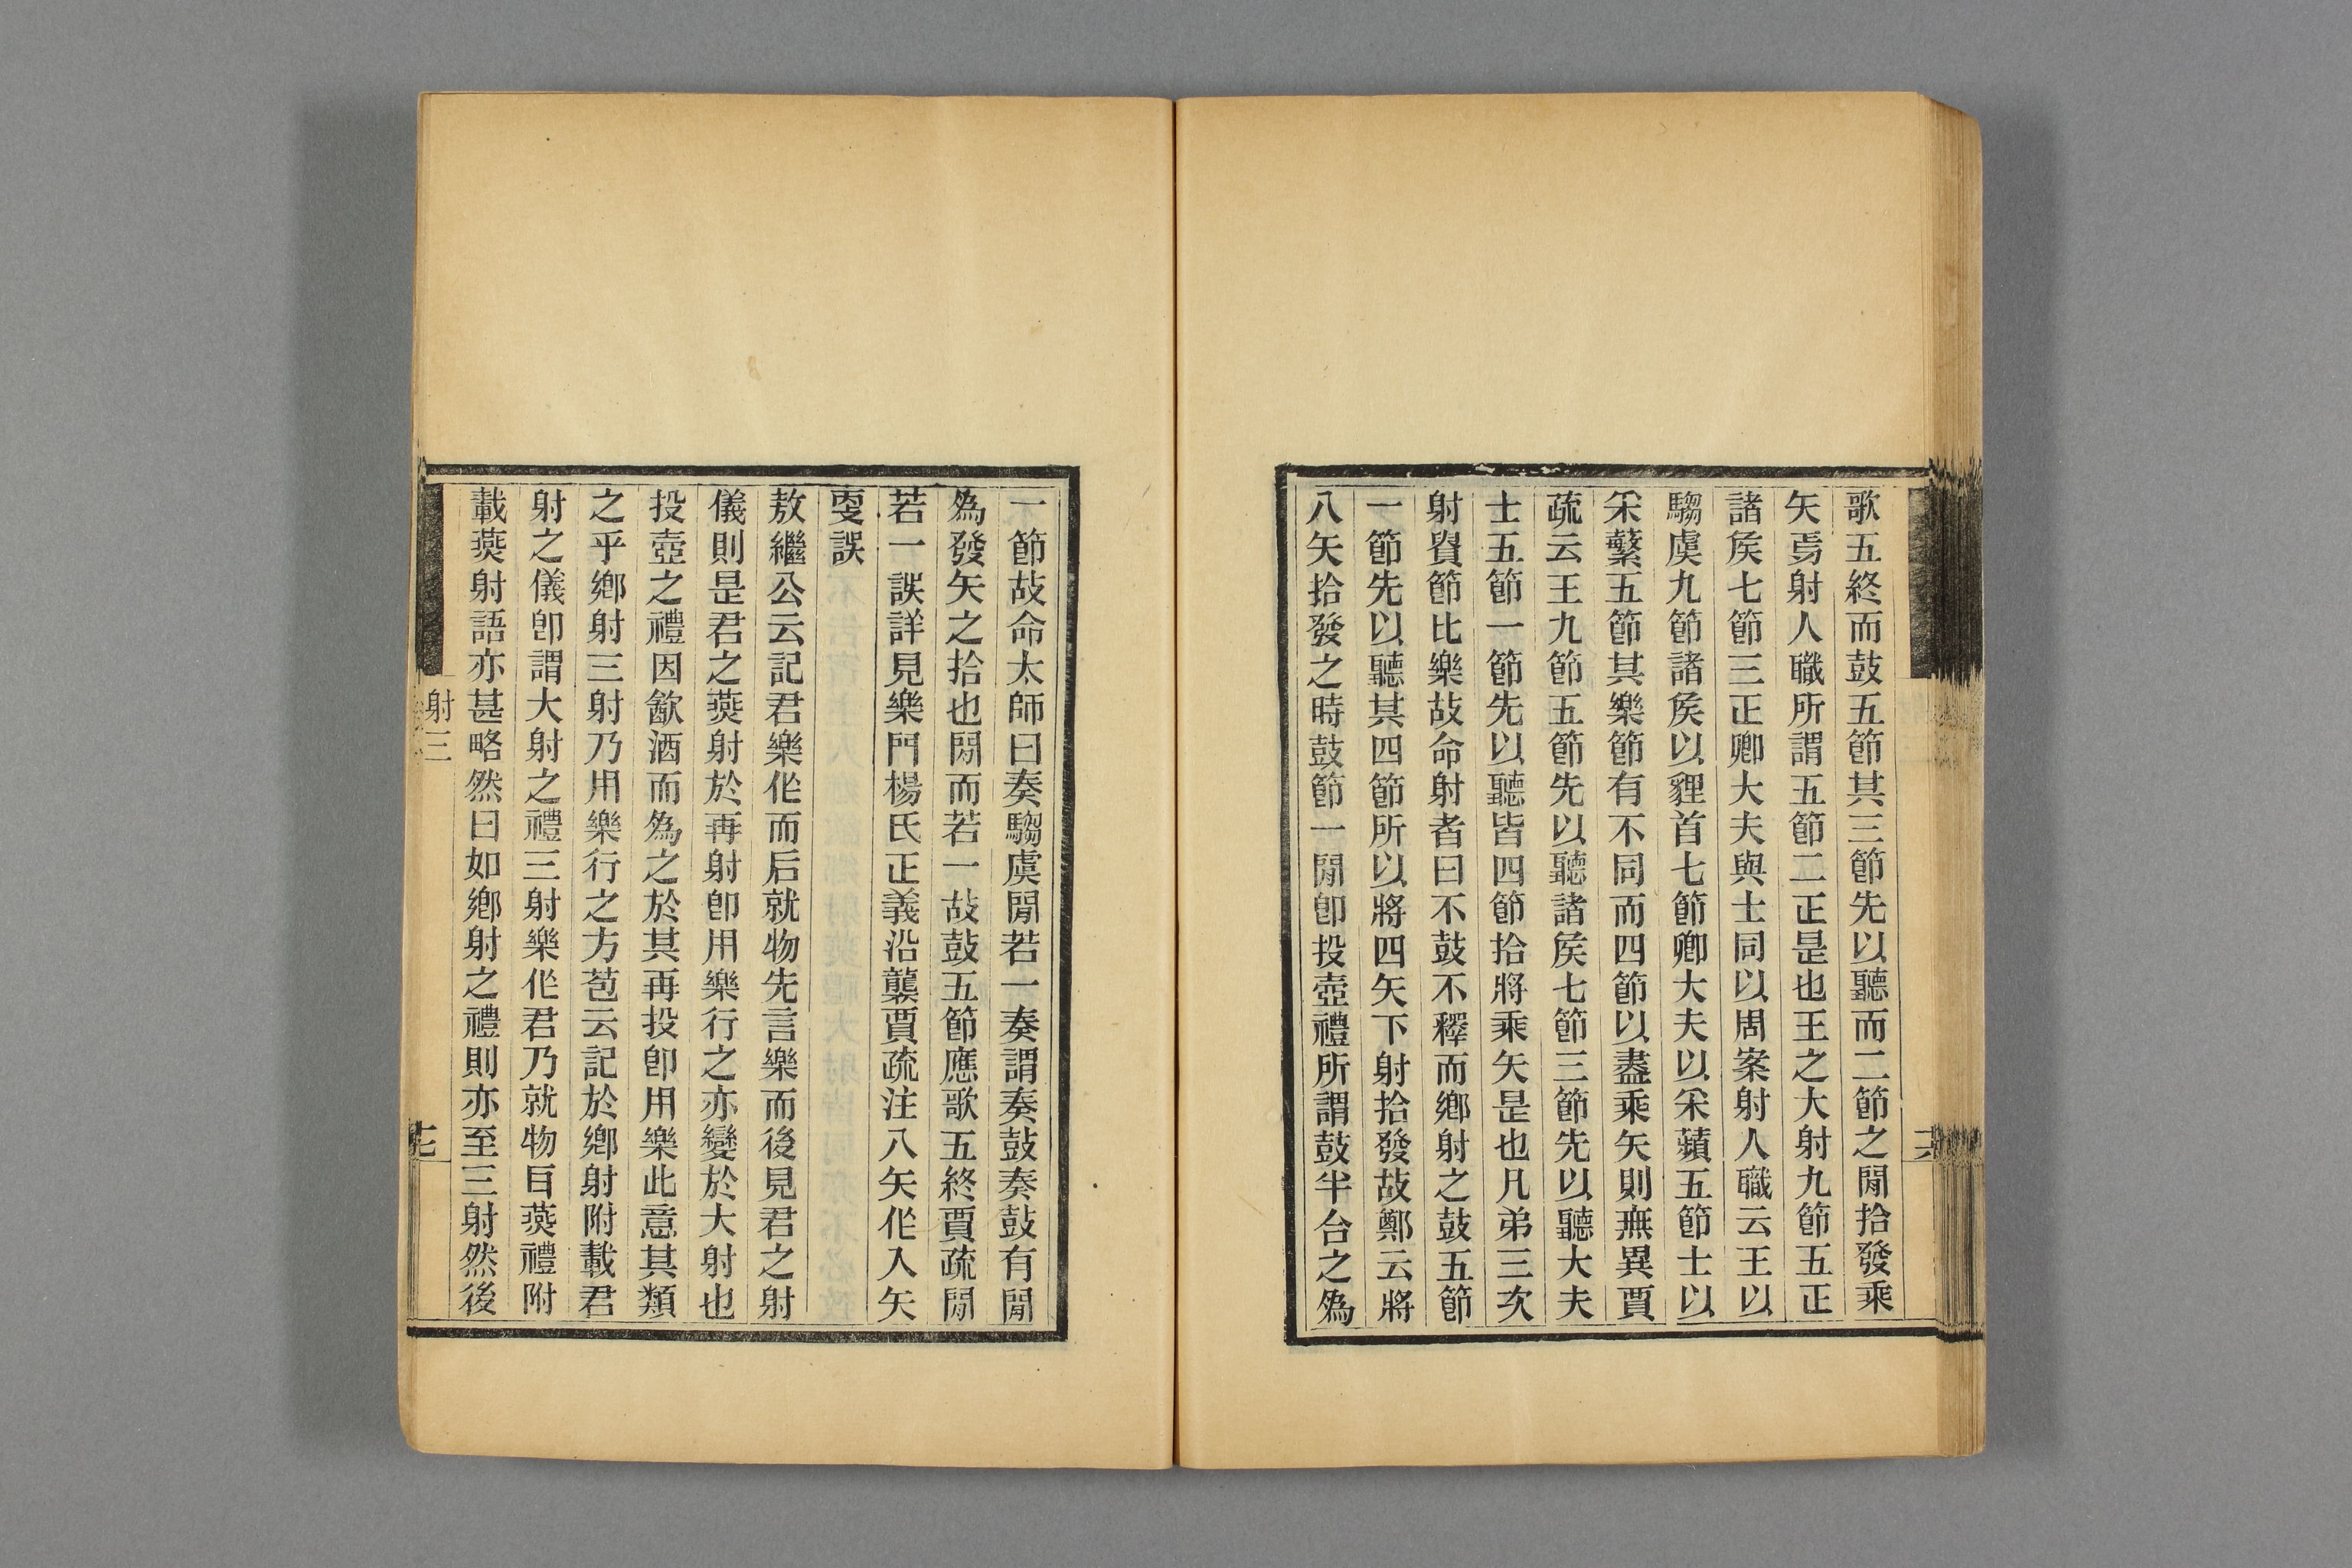 歌五終而鼓五節其三節先以聽而二節之閒拾發乘
矢焉射人職所謂五節二正是也王之大射九節五正
諸矦七節三正卿大夫與士同以周案射人職云王以
騶虞九節諸矦以貍首七節卿大夫以采蘋五節士以
采蘩五節其樂節有不同而四節以盡乘矢則無異賈
疏云王九節五節先以聽諸矦七節三節先以聽大夫
士五節一節先以聽皆四節拾將乘矢是也凡弟三次
射貴節比樂故命射者曰不鼓不釋而鄉射之鼓五節
一節先以聽其四節所以將四矢下射拾發故鄭云將
八矢拾發之時鼓節一閒卽投壺禮所謂鼓半台之爲
一節故命太師曰奏騶虞閒若一奏謂奏鼓奏鼓有閒
爲發矢之拾也閒而若一故鼓五節應歌五終賈疏閒
若一誤詳見樂門楊氏正義沿襲賈疏注八矢作入矢
更誤
敖繼公云記君樂作而后就物先言樂而後見君之射
儀則是君之燕射於再射卽用樂行之亦變於大射也
投壺之禮因飮酒而爲之於其再投卽用樂此意其類
之乎鄉射三射乃用樂行之方苞云記於鄉射附載君
射之儀卽謂大射之禮三射樂作君乃就物㠯燕禮附
載燕射語亦甚略然曰如鄉射之禮則亦至三射然後
射三
十七